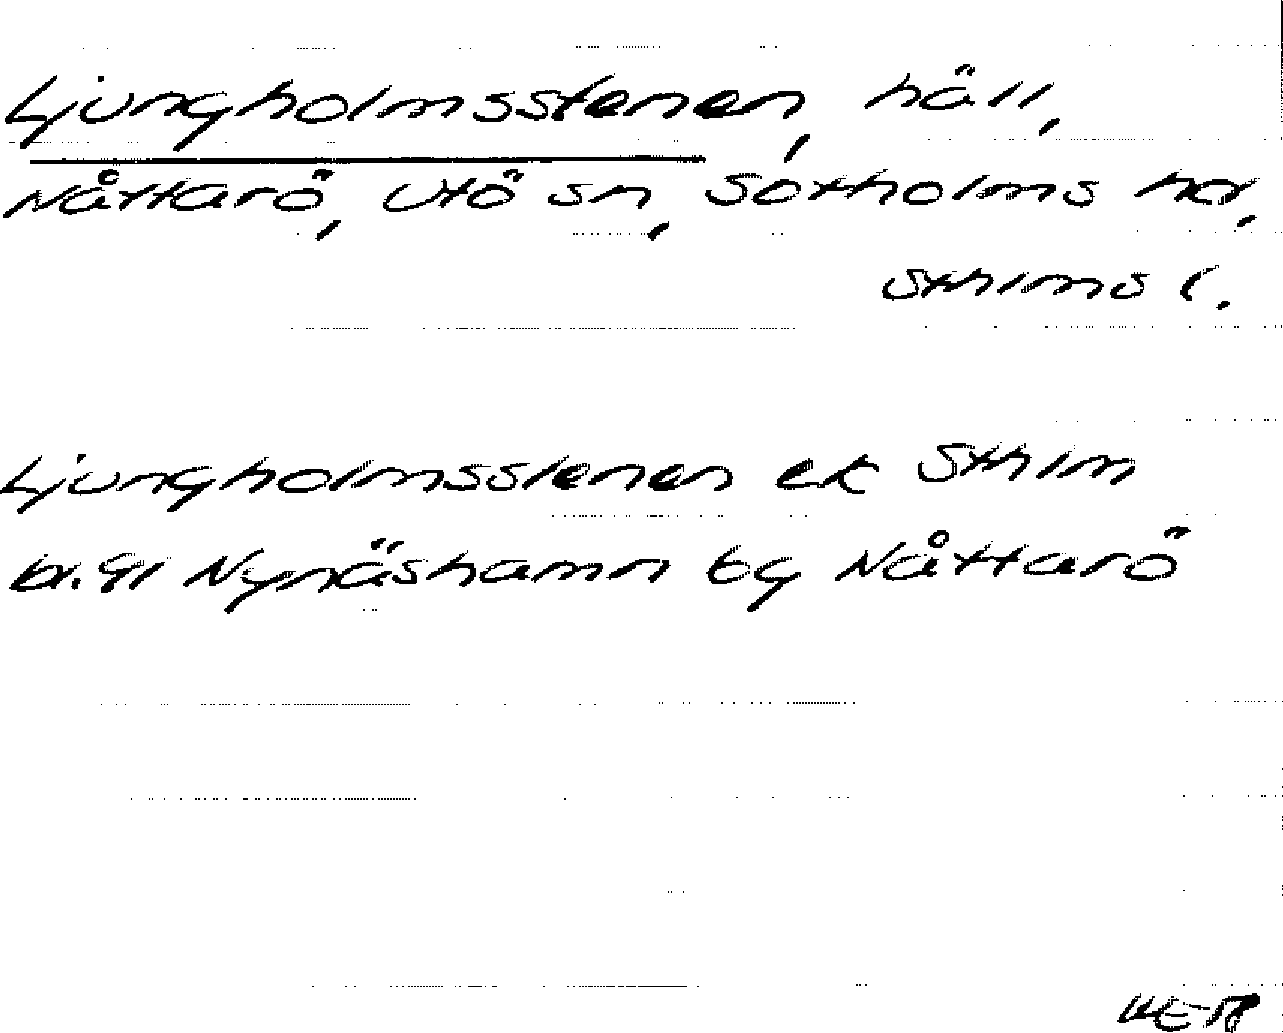 Ljungholmsstenen, häll,
Nåttarö, Utö sn, Sotholms hd,
Sthlms l.
Ljungholmsstenen ek Sthlm
bl. 91 Nynäshamn by Nåttarö